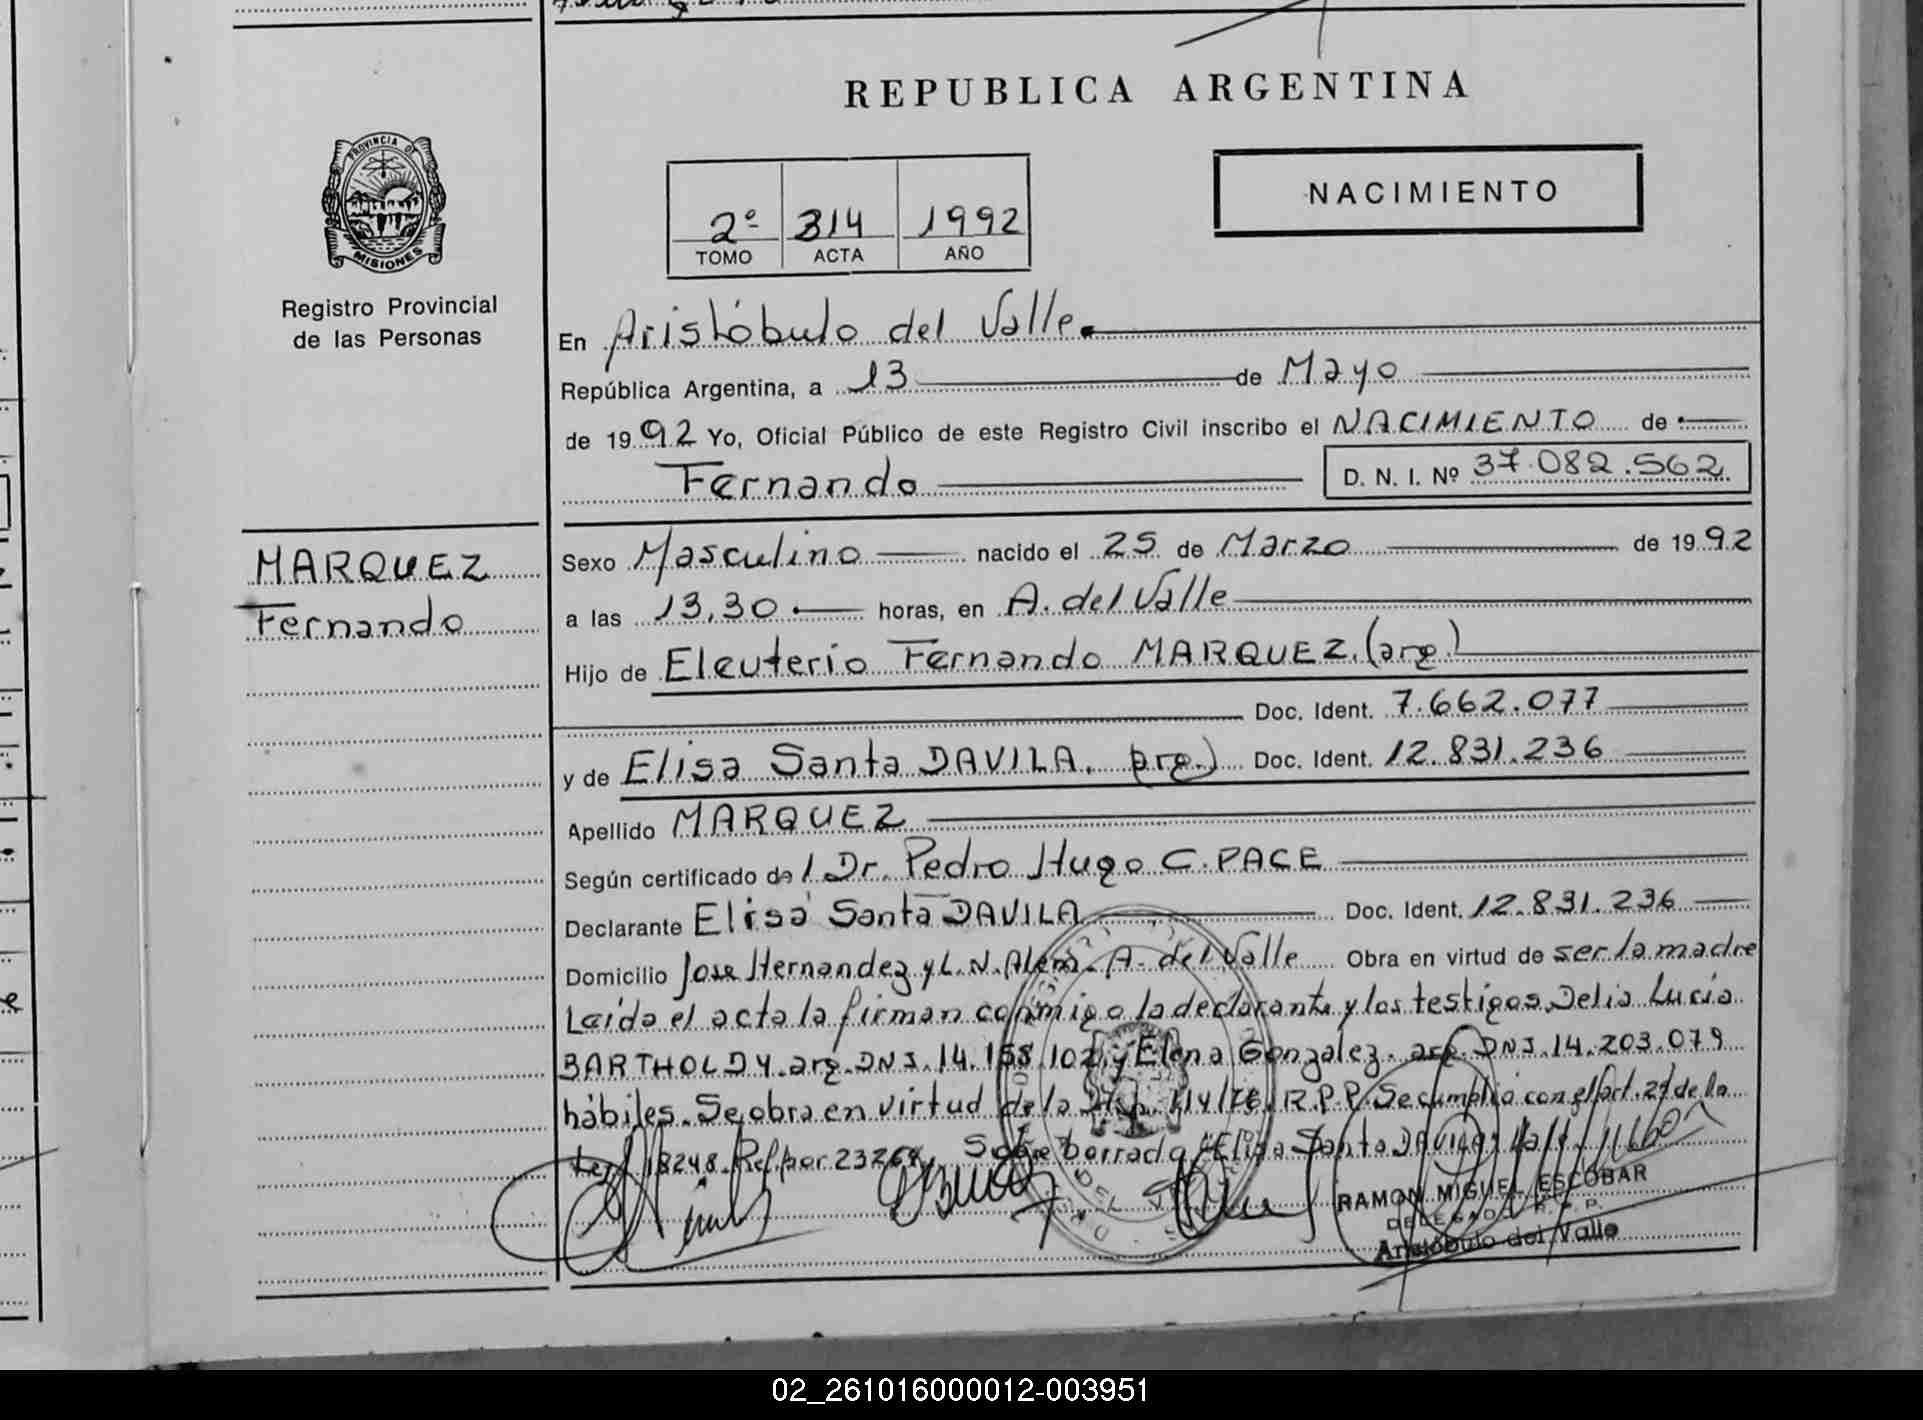 REPUBLICA ARGENTINA
PROVINCIA DE
MISIONES
Registro Provincial
de las Personas
2º 314 1992
TOMO ACTA AÑO
NACIMIENTO
En Aristóbulo del Valle.
República Argentina, a 13 de Mayo
de 1992 Yo, Oficial Público de este Registro Civil inscribo el NACIMIENTO de
Fernando D. N. I. Nº 37.082.562
MARQUEZ
Fernando
Sexo Masculino nacido el 25 de Marzo de 1992
a las 13,30 horas, en A. del Valle
Hijo de Eleuterio Fernando MARQUEZ. (arg.)
Doc. Ident. 7.662.077
y de Elisa Santa DAVILA. (arg.) Doc. Ident. 12.831.236
Apellido MARQUEZ
Según certificado del Dr. Pedro Hugo C. PACE
Declarante Elisa Santa DAVILA Doc. Ident. 12.831.236
Domicilio Jose Hernandez y L. N. Alem. A. del Valle Obra en virtud de ser la madre
Leida el acta la firman conmigo la declarante y los testigos Delia Lucia
BARTHOLDY. arg. DNI. 14.158.102 y Elena Gonzalez. arg. DNI. 14.203.079
hábiles. Se obra en virtud de la 114/78. R.P.P. Se cumplió con el art. 2º de la
Ley 18248. Ref por 23264. Sobre borrado: Elisa Santa DAVILA:
RAMON MIGUEL ESCOBAR
DELEGADO R. P. P.
Aristóbulo del Valle
02_261016000012-003951